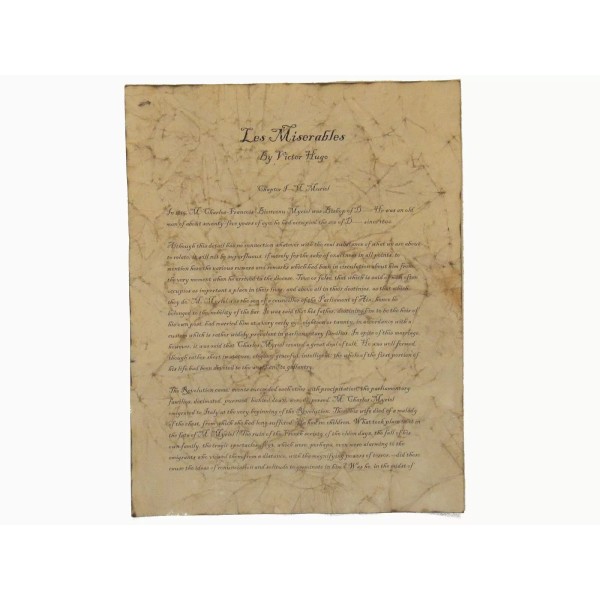 Les Miserables
By Victor Hugo
Chapter I—M. Myriel
In 1815, M. Charles-Francois-Bienvenu Myriel was Bishop of D—— He was an old
man of about seventy-five years of age; he had occupied the see of D—— since 1806.
Although this detail has no connection whatever with the real substance of what we are about
to relate, it will not be superfluous, if merely for the sake of exactness in all points, to
mention here the various rumors and remarks which had been in circulation about him from
the very moment when he arrived in the diocese. True or false, that which is said of men often
occupies as important a place in their lives, and above all in their destinies, as that which
they do. M. Myriel was the son of a councillor of the Parliament of Aix; hence he
belonged to the nobility of the bar. It was said that his father, destining him to be the heir of
his own post, had married him at a very early age, eighteen or twenty, in accordance with a
custom which is rather widely prevalent in parliamentary families. In spite of this marriage,
however, it was said that Charles Myriel created a great deal of talk. He was well formed,
though rather short in stature, elegant, graceful, intelligent; the whole of the first portion of
his life had been devoted to the world and to gallantry.
The Revolution came; events succeeded each other with precipitation; the parliamentary
families, decimated, pursued, hunted down, were dispersed. M. Charles Myriel
emigrated to Italy at the very beginning of the Revolution. There his wife died of a malady
of the chest, from which she had long suffered. He had no children. What took place next in
the fate of M. Myriel? The ruin of the French society of the olden days, the fall of his
own family, the tragic spectacles of '93, which were, perhaps, even more alarming to the
emigrants who viewed them from a distance, with the magnifying powers of terror,—did these
cause the ideas of renunciation and solitude to germinate in him? Was he, in the midst of